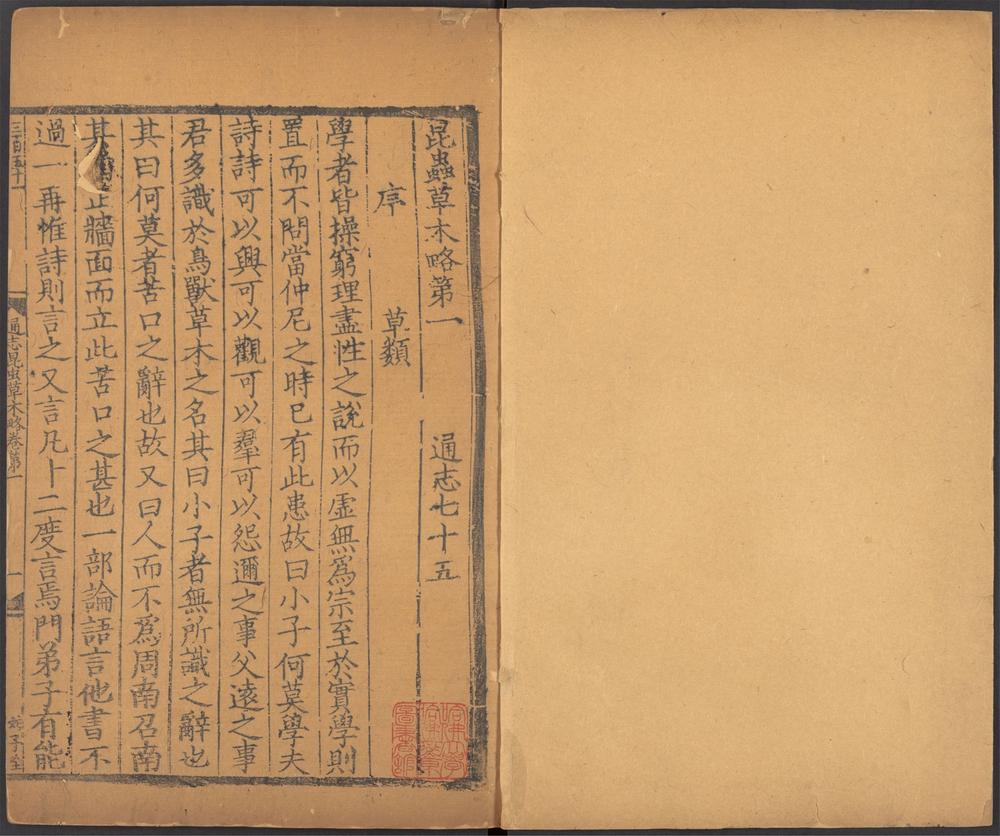 昆蟲草木略第一　通志七十五
序　草類
學者皆操窮理盡性之說而以虛無爲宗至於實學則
置而不問當仲尼之時已有此患故曰小子何莫學夫
詩詩可以興可以觀可以羣可以怨邇之事父遠之事
君多識於鳥獸草木之名其曰小子者無所識之辭也
其曰何莫者苦口之辭也故又曰人而不爲周南召南
其正牆面而立此苦口之甚也一部論語言他書不
過一再惟詩則言之又言凡十二度言焉門弟子有能
三百五十一
通志昆虫草木略卷第一
一